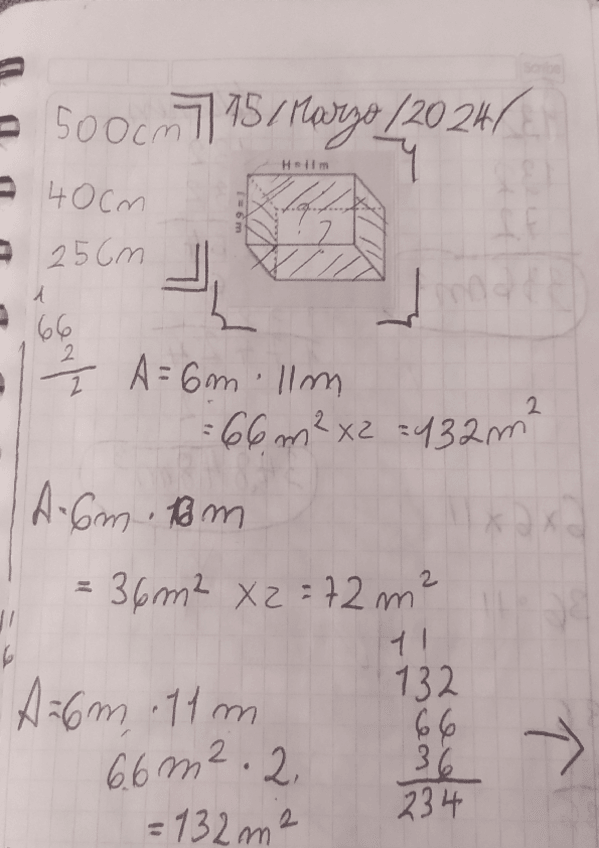 500cm 15/Marzo/2024/
40cm
25cm
H=11m
l=6m
?
1
66
2
2
A = 6m · 11m
= 66 m² x2 = 132m²
A = 6m · 6m
= 36m² x2 = 72m²
11
6
A = 6m · 11m
66m² · 2.
= 132m²
11
132
66
36
234
→